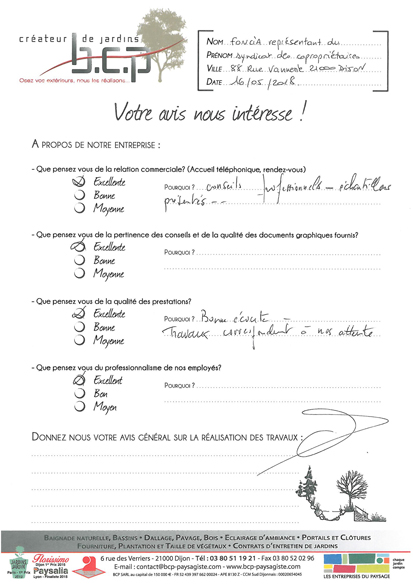 créateur de jardins
b.c.p
Osez vos extérieurs, nous les réalisons.
NOM Foncia représentant du
PRÉNOM Syndicat des copropriétaires
VILLE 88 Rue Vannerie 21000 DIJON
DATE 16/05/2018
Votre avis nous intéresse !
A PROPOS DE NOTRE ENTREPRISE :
- Que pensez vous de la relation commerciale? (Accueil téléphonique, rendez-vous)
Excellente
Bonne
Moyenne
POURQUOI ? conseils professionnels - échantillons
présentés --
- Que pensez vous de la pertinence des conseils et de la qualité des documents graphiques fournis?
Excellente
Bonne
Moyenne
POURQUOI ?
- Que pensez vous de la qualité des prestations?
Excellente
Bonne
Moyenne
POURQUOI ? Bonne écoute -
Travaux correspondent à nos attente
- Que pensez vous du professionnalisme de nos employés?
Excellent
Bon
Moyen
POURQUOI ?
DONNEZ NOUS VOTRE AVIS GÉNÉRAL SUR LA RÉALISATION DES TRAVAUX :
BAIGNADE NATURELLE, BASSINS • DALLAGE, PAVAGE, BOIS • ECLAIRAGE D'AMBIANCE • PORTAILS ET CLÔTURES
FOURNITURE, PLANTATION ET TAILLE DE VÉGÉTAUX • CONTRATS D'ENTRETIEN DE JARDINS
6 rue des Verriers - 21000 Dijon - Tél : 03 80 51 19 21 - Fax 03 80 52 02 96
E-mail : contact@bcp-paysagiste.com - www.bcp-paysagiste.com
Florissimo
Dijon 1er Prix 2010
Paysalia
LES ENTREPRISES DU PAYSAGE